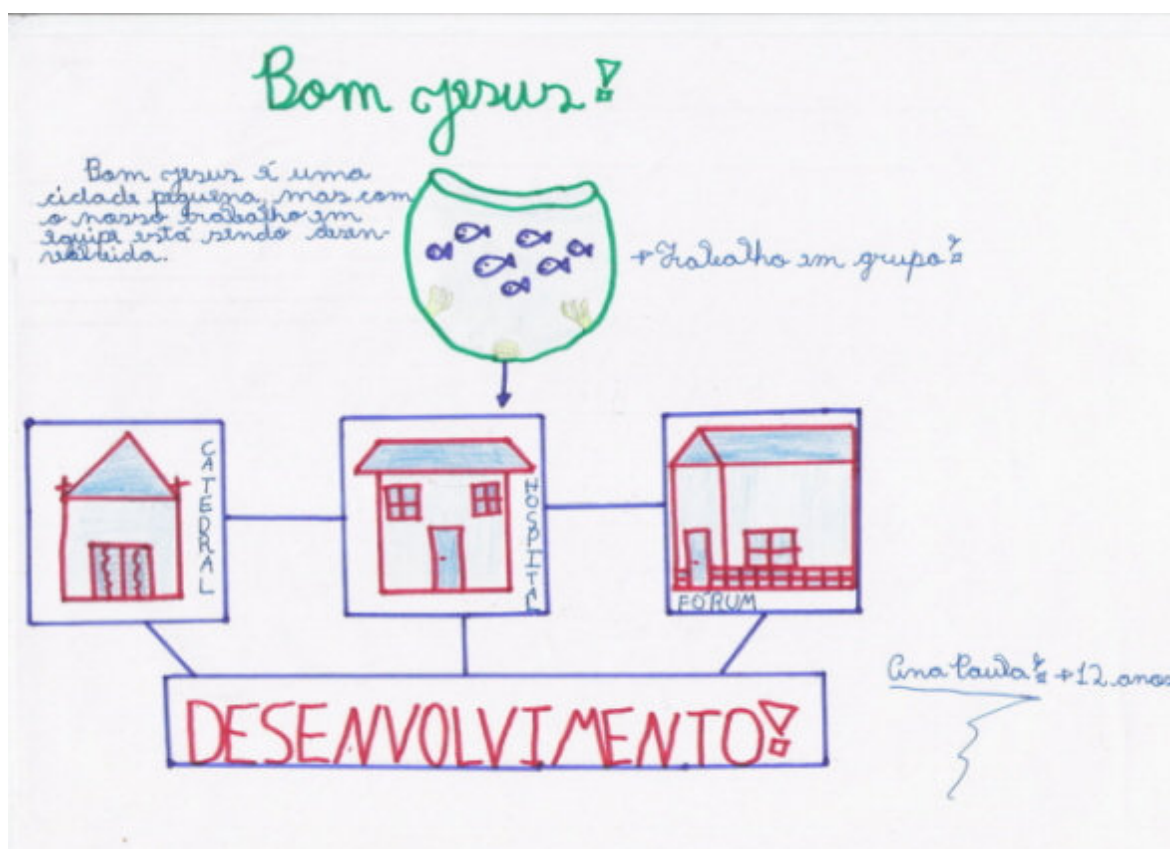 Bom Jesus!
Bom Jesus é uma
cidade pequena, mas com
o nosso trabalho em
equipe está sendo desen-
volvida.
→ Trabalho em grupo!
CATEDRAL
HOSPITAL
FÓRUM
DESENVOLVIMENTO!
Ana Paula! → 12 anos